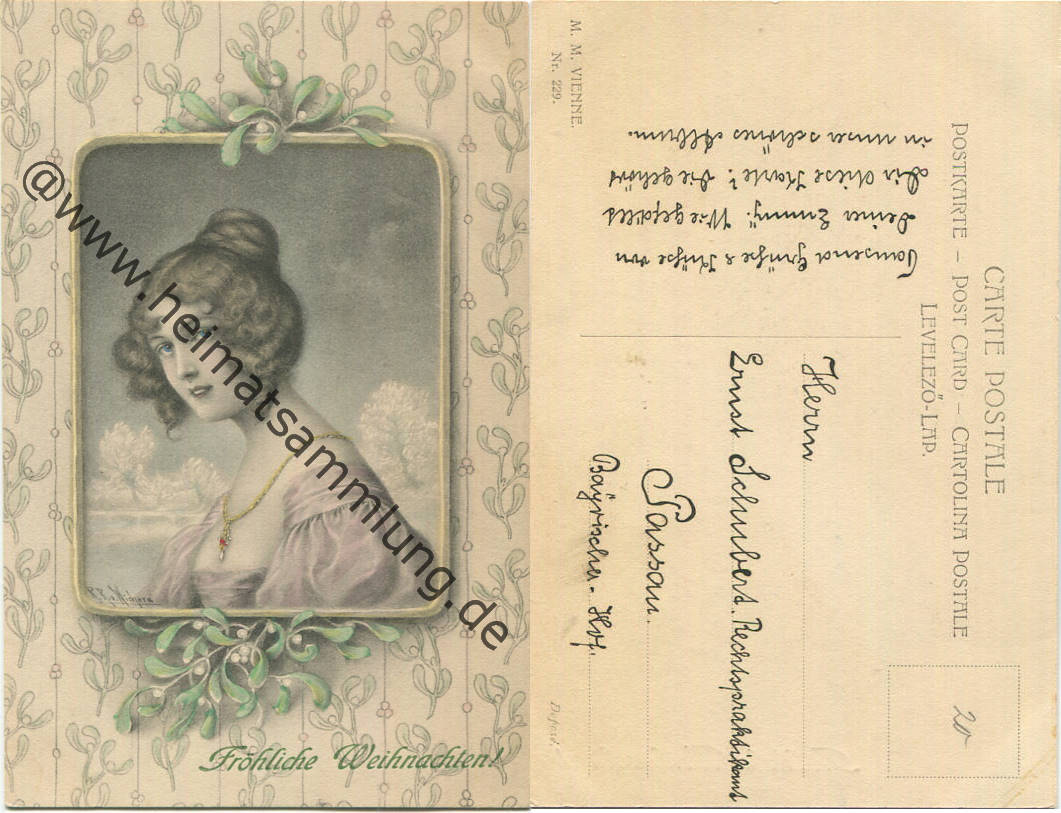 @www.heimatsammlung.de
Fröhliche Weihnachten!
M. M. VIENNE.
Nr. 229.
CARTE POSTALE
POSTKARTE – POST CARD – CARTOLINA POSTALE
LEVELEZŐ-LAP.
Tausend Grüße & Küsse von
Deiner Emmy. Wie gefällt
Dir diese Karte? Sie gehört
in unser schönes Album.
Herrn
Ernst Schubert. Rechtspraktikant
Passau.
Bayrischer-Hof.
20